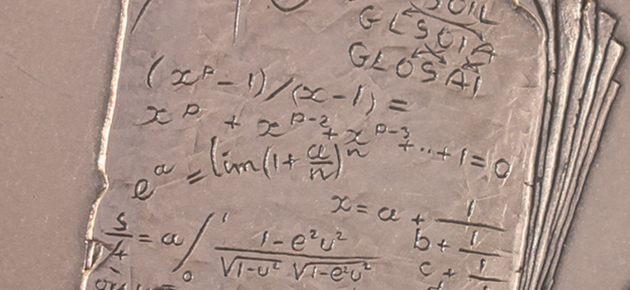 SOIL
GLSOIA
GLOSAI
(x^p − 1)/(x − 1) =
x^p + x^{p-2} + x^{p-3} + ... + 1 = 0
e^a = lim(1 + a/n)^n
x = a + 1
b + 1
s/4 = a ∫_0^1 (1 − e²υ²)/(√1−υ² √1−e²υ²)
c + 1